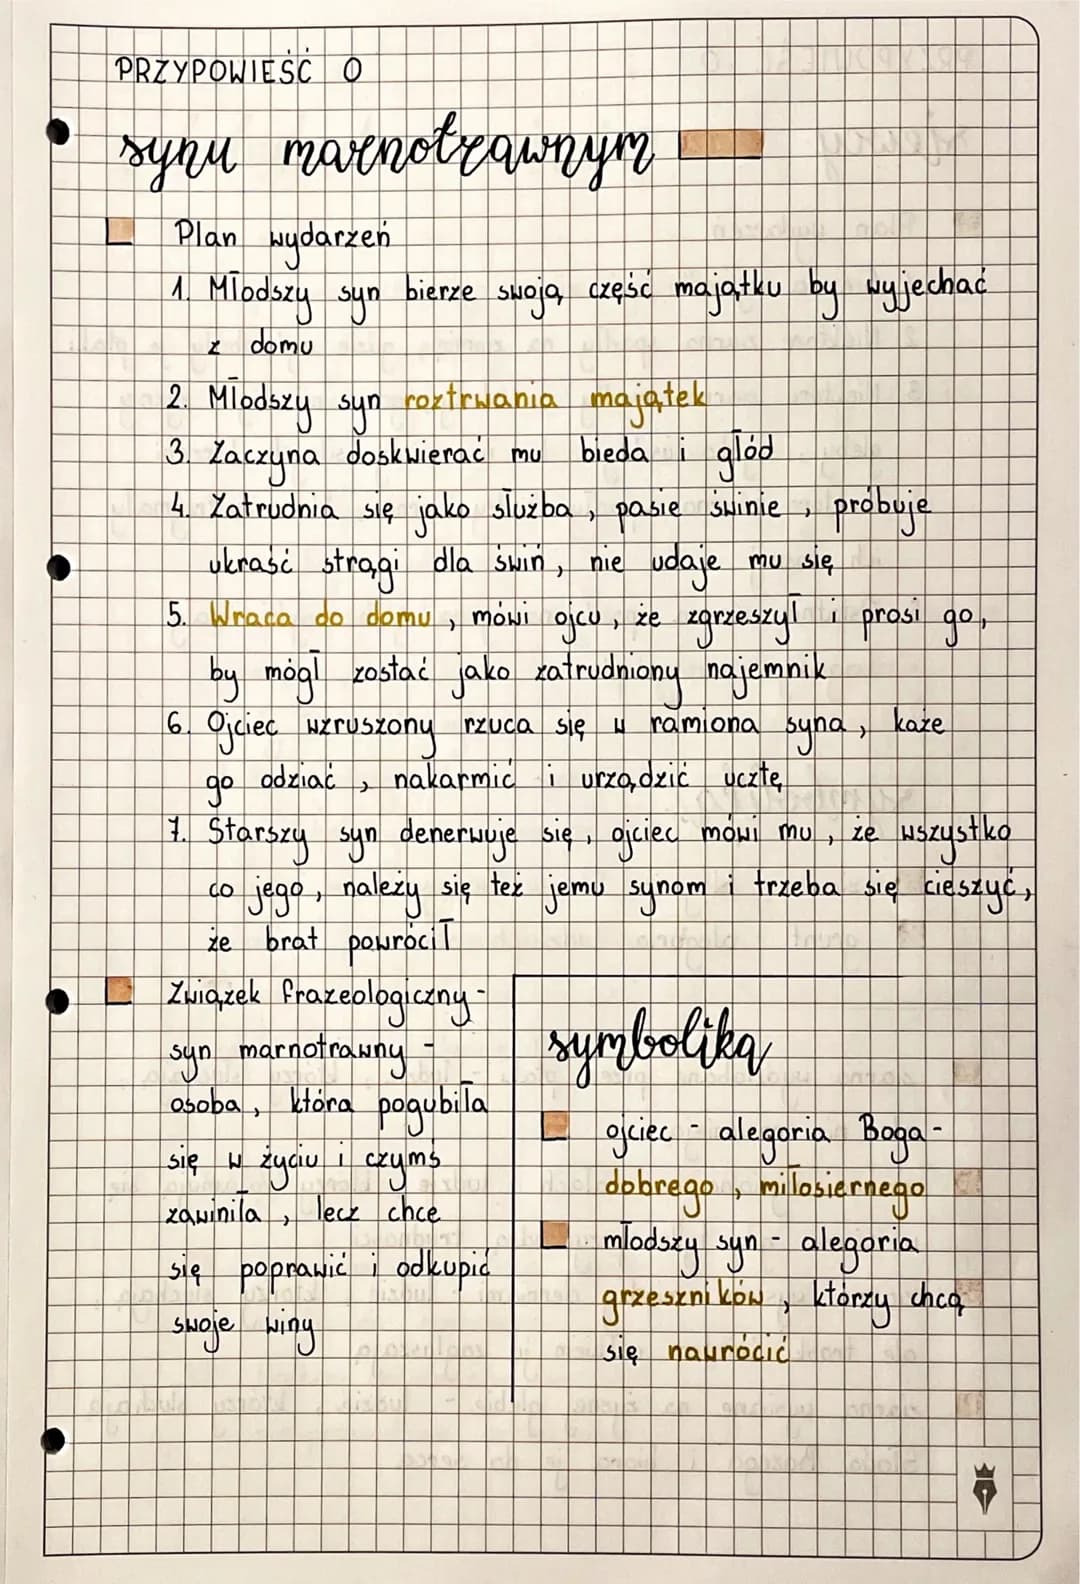 PRZYPOWIEŚĆ O
synu marnotrawnym
Plan wydarzeń
1. Młodszy syn bierze swoją część majątku by wyjechać
z domu
2. Młodszy syn roztrwania majątek
3. Zaczyna doskwierać mu bieda i głód
4. Zatrudnia się jako służba, pasie świnie, próbuje
ukraść strągi dla świń, nie udaje mu się
5. Wraca do domu, mówi ojcu, że zgrzeszył i prosi go,
by mógł zostać jako zatrudniony najemnik
6. Ojciec wzruszony rzuca się w ramiona syna, każe
go odziać, nakarmić i urządzić ucztę
7. Starszy syn denerwuje się, ojciec mówi mu, że wszystko
co jego, należy się też jemu synom i trzeba się cieszyć,
że brat powrócił
Związek frazeologiczny -
syn marnotrawny -
osoba, która pogubiła
się w życiu i czymś
zawiniła, lecz chce
się poprawić i odkupić
swoje winy
symbolika
ojciec - alegoria Boga -
dobrego, miłosiernego
młodszy syn - alegoria
grzeszników, którzy chcą
się nawrócić